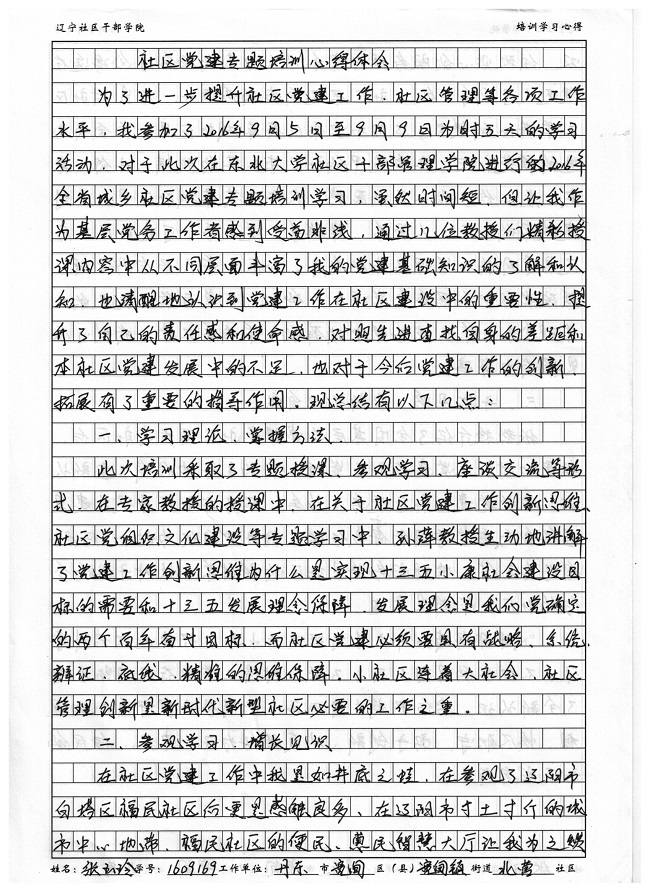 辽宁社区干部学院 培训学习心得
社区党建专题培训心得体会
为了进一步提升社区党建工作、社区管理等各项工作
水平,我参加了2016年9月5日至9月9日为时五天的学习
活动,对于此次在东北大学社区干部管理学院进行的2016年
全省城乡社区党建专题培训学习,虽然时间短,但让我作
为基层党务工作者感到受益非浅,通过几位教授们精彩授
课内容中从不同层面丰富了我的党建基础知识的了解和认
知,也清醒地认识到党建工作在社区建设中的重要性,提
升了自己的责任感和使命感,对照先进查找自身的差距和
本社区党建发展中的不足,也对于今后党建工作的创新、
拓展有了重要的指导作用。现总结有以下几点:
一、学习理论、掌握方法.
此次培训采取了专题授课、参观学习、座谈交流等形
式,在专家教授的授课中,在关于社区党建工作创新思维、
社区党组织文化建设等专题学习中,孙萍教授生动地讲解
了党建工作创新思维为什么是实现十三五小康社会建设目
标的需要和十三五发展理念保障,发展理念是我们党确定
的两个百年奋斗目标,而社区党建必须要具有战略、系统、
辩证、底线、精准的思维保障,小社区连着大社会,社区
管理创新是新时代新型社区必要的工作之重。
二、参观学习、增长见识
在社区党建工作中我是如井底之蛙,在参观了辽阳市
白塔区福民社区后更是感触良多,在辽阳市寸土寸斤的城
市中心地带,福民社区的便民、惠民智慧大厅让我为之
姓名: 张玉玲 学号: 1609169 工作单位: 丹东 市 区(县) 街道 社区